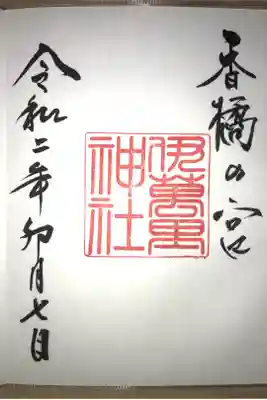 香橘の宮
伊萬里
神社
令和二年卯月七日